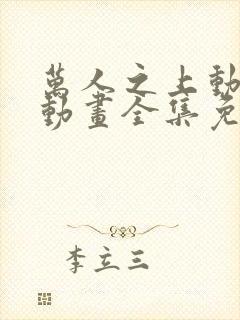 萬人之上動
動畫全集免
李立三